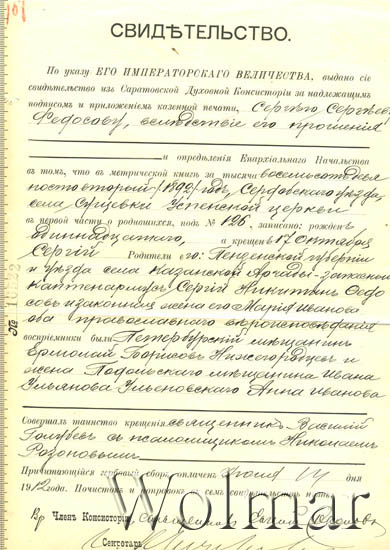 101
СВИДѢТЕЛЬСТВО.
По указу ЕГО ИМПЕРАТОРСКАГО ВЕЛИЧЕСТВА, выдано сіе
свидѣтельство изъ Саратовской Духовной Консисторіи за надлежащимъ
подписомъ и приложеніемъ казенной печати, Сергѣю Сергѣеву
Федосову, вслѣдствіе его прошенія
и опредѣленія Епархіальнаго Начальства
въ томъ, что въ метрической книгѣ за тысяча восемьсотъ
второй /1892/ годъ, Сердобскаго уѣзда,
села Успенской церкви
въ первой части о родившихся, подъ № 126, записано: рожденъ
одиннадцатаго, а крещенъ 17 октября
Сергій Родители его: Пензенской губерніи
и уѣзда села Казанской
Сергій Никитинъ Федо
совъ и законная жена его Марія Иванова
оба православнаго вѣроисповѣданія
воспріемники были: Петербургскій мѣщанинъ
Ермолай Борисовъ и
жена Подольскаго мѣщанина Ивана
Ульянова Ульяновскаго Анна Иванова
Совершалъ таинство крещенія священникъ Василій
Голубевъ съ псаломщикомъ Николаемъ
Розановымъ
Причитающійся гербовый сборъ оплаченъ Іюля дня
1912 года.
Членъ Консисторіи,
Секретарь
Wolmar